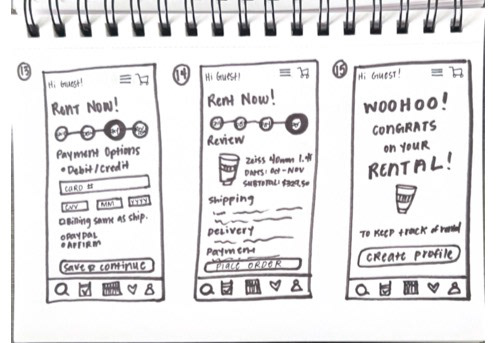 13
Hi Guest!
Rent Now!
Payment Options
Debit/Credit
CARD #
CVV MM YYYY
Billing same as ship.
PAYPAL
AFFIRM
Save & continue
14
Hi Guest!
Rent Now!
Review
Zeiss 40mm 1.4
DATES: Oct - NOV
SUBTOTAL: $329.50
Shipping
Delivery
Payment
PLACE ORDER
15
Hi Guest!
WOOHOO!
CONGRATS
on YOUR
RENTAL!
To Keep track of rental
Create profile